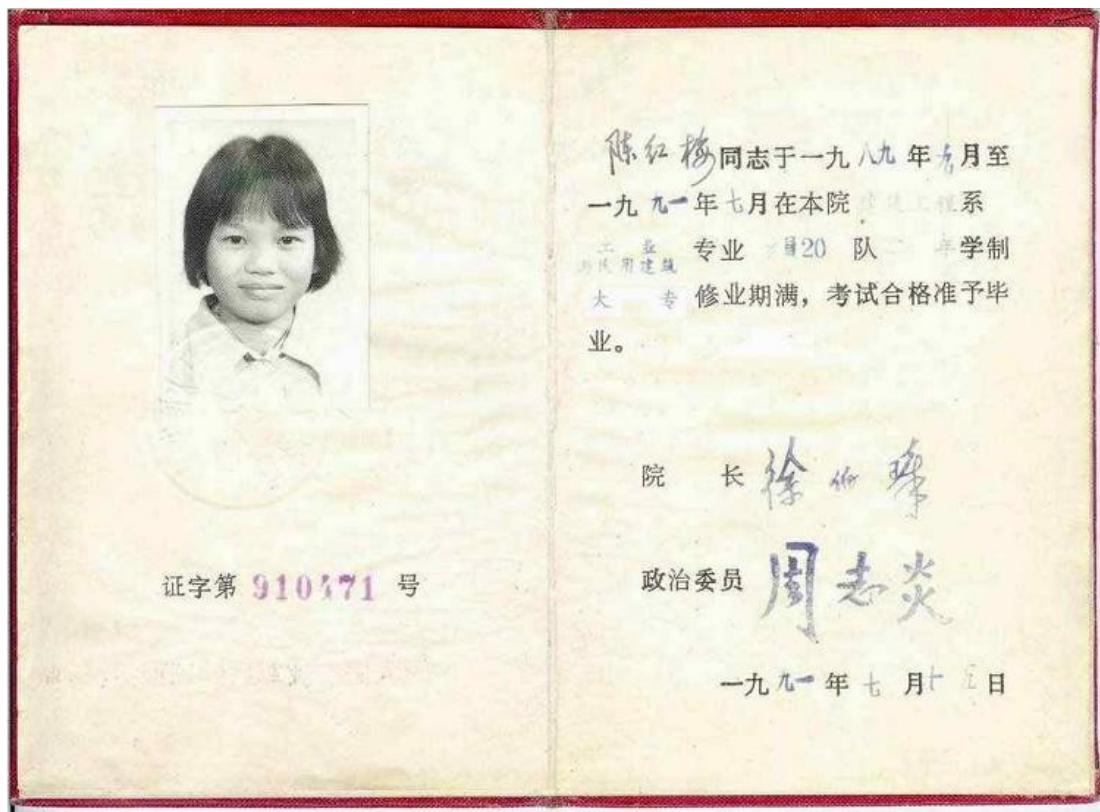 证字第 910471 号
陈红梅同志于一九八九年九月至
一九九一年七月在本院建筑工程系
工业
与民用建筑
专业 20 队二年学制
大专修业期满，考试合格准予毕
业。
院长 徐
政治委员 周志炎
一九九一年七月十五日